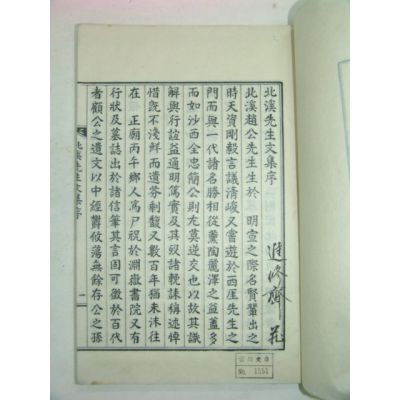 北溪先生文集序
北溪趙公先生生於 明宣之際名賢輩出之
時天資剛毅言議淸峻又嘗遊於西厓先生之
門而與一代諸名勝相從熏陶麗澤之益蓋多
而如沙西全忠簡公則尤莫逆交也以故其識
解與行誼益通明篤實及其歿諸輓誄稱述悼
惜旣不淺鮮而遺芬剩馥又數百年猶未沫往
在 正廟丙午鄕人寓尸祝於淵嶽書院又有
行狀及墓誌出於諸信筆其言固可徵於百代
者顧公之遺文以中經鬱攸蕩無餘存公之孫
北溪先生文集序 一
修齋
No. 1551